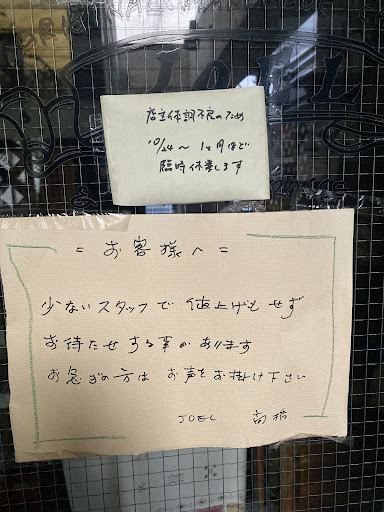 JOEL
店主体調不良のため
10/24〜1ヶ月ほど
臨時休業します
=お客様へ=
少ないスタッフで値上げもせず
お待たせする事があります
お急ぎの方はお声をお掛け下さい
JOEL 高橋